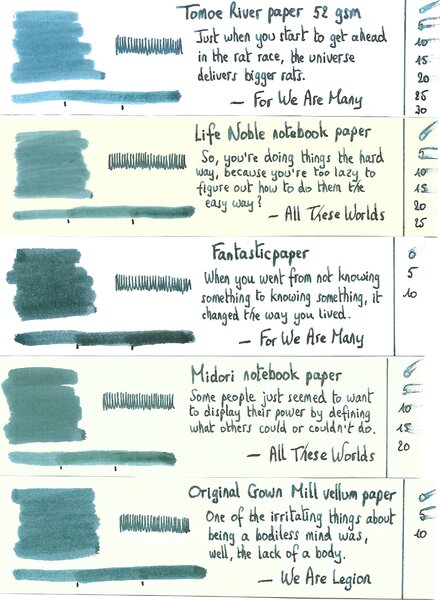 Tomoe River paper 52 gsm
Just when you start to get ahead
in the rat race, the universe
delivers bigger rats.
— For We Are Many
0
5
10
15
20
25
30
Life Noble notebook paper
So, you're doing things the hard
way, because you're too lazy to
figure out how to do them the
easy way?
— All These Worlds
0
5
10
15
20
25
Fantasticpaper
When you went from not knowing
something to knowing something, it
changed the way you lived.
— For We Are Many
0
5
10
Midori notebook paper
Some people just seemed to want
to display their power by defining
what others could or couldn't do.
— All These Worlds
0
5
10
15
20
Original Crown Mill vellum paper
One of the irritating things about
being a bodiless mind was,
well, the lack of a body.
— We Are Legion
0
5
10